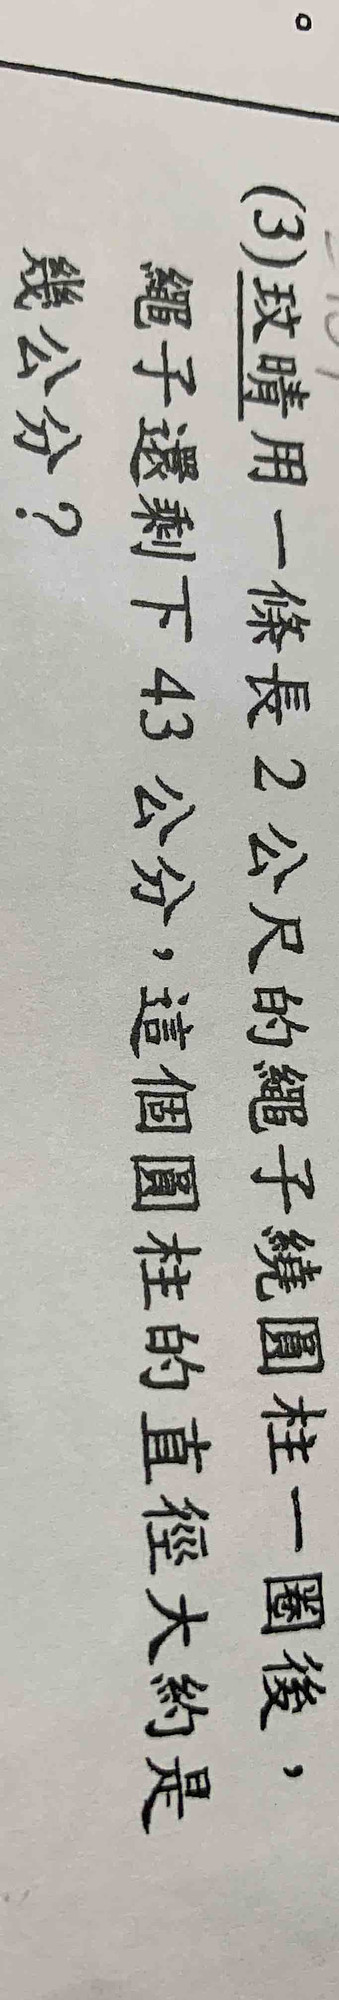 (3)玟晴用一條長2公尺的繩子繞圓柱一圈後，
繩子還剩下43公分，這個圓柱的直徑大約是
幾公分？